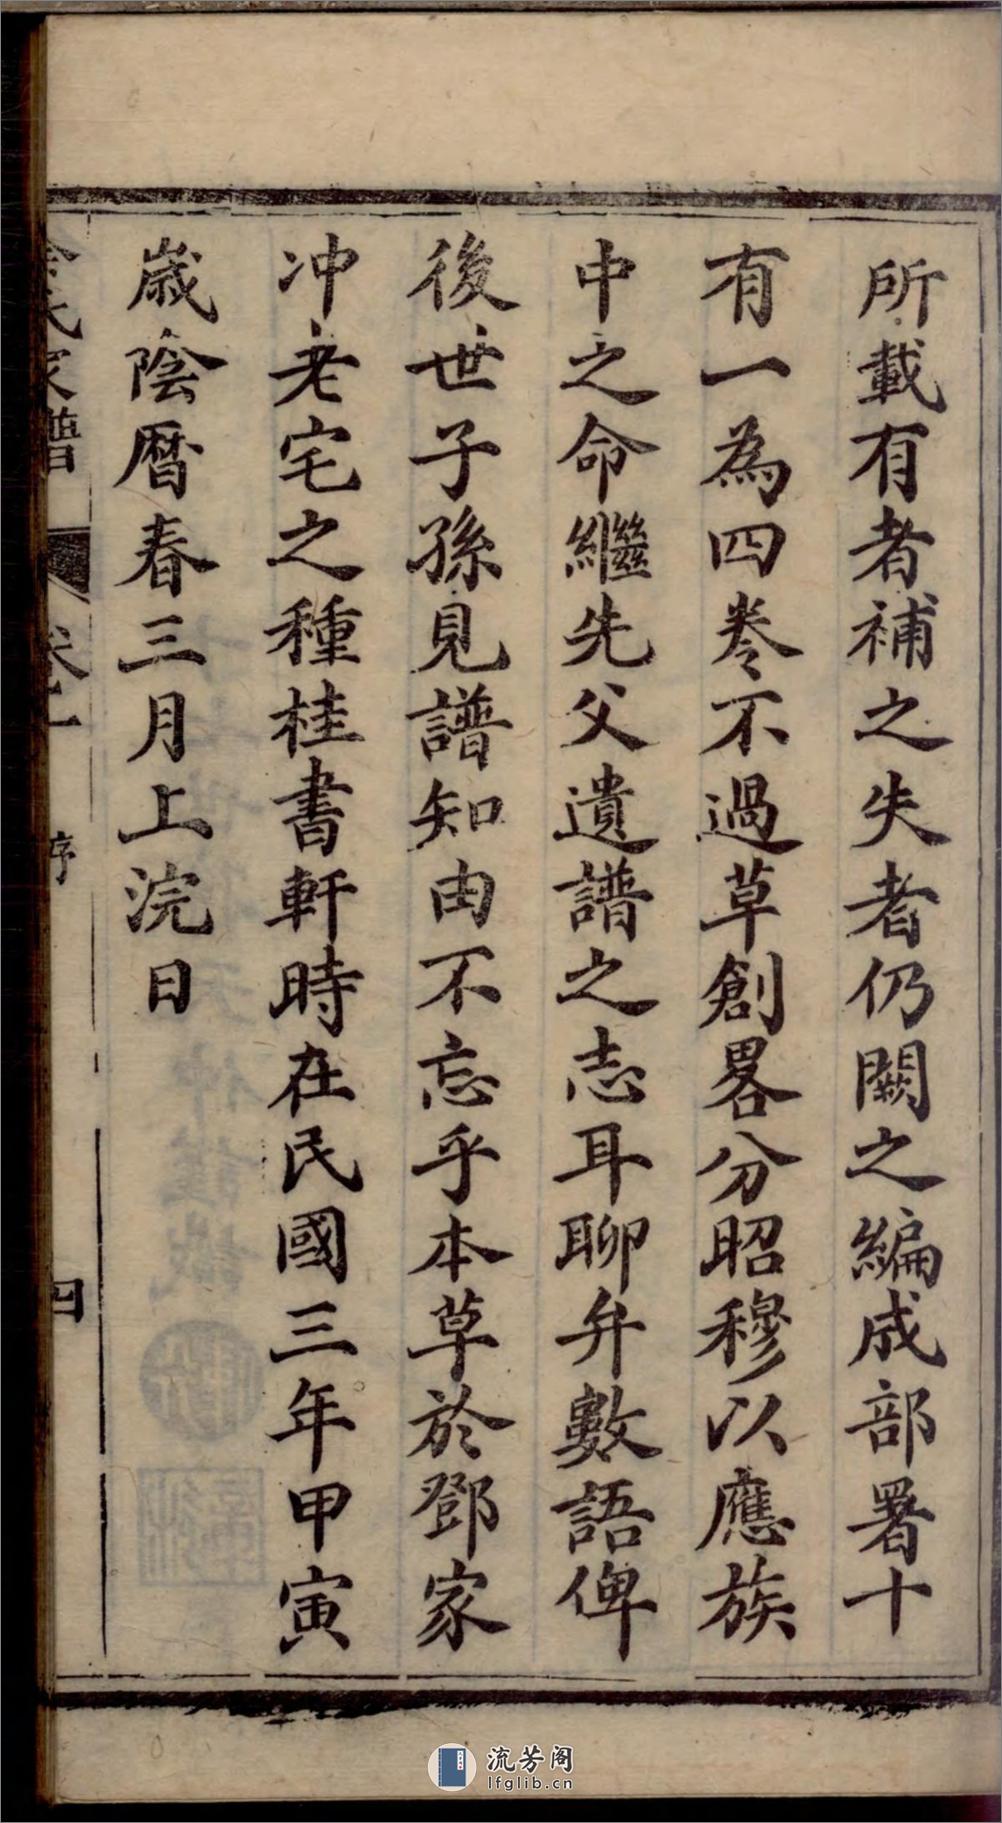 所載有者補之失者仍闕之編成部署十
有一為四卷不過草創畧分昭穆以應族
中之命繼先父遺譜之志耳聊弁數語俾
後世子孫見譜知由不忘乎本草於鄧家
冲老宅之種桂書軒時在民國三年甲寅
歲陰曆春三月上浣日
氏家譜
序
四
流芳阁
lfglib.cn